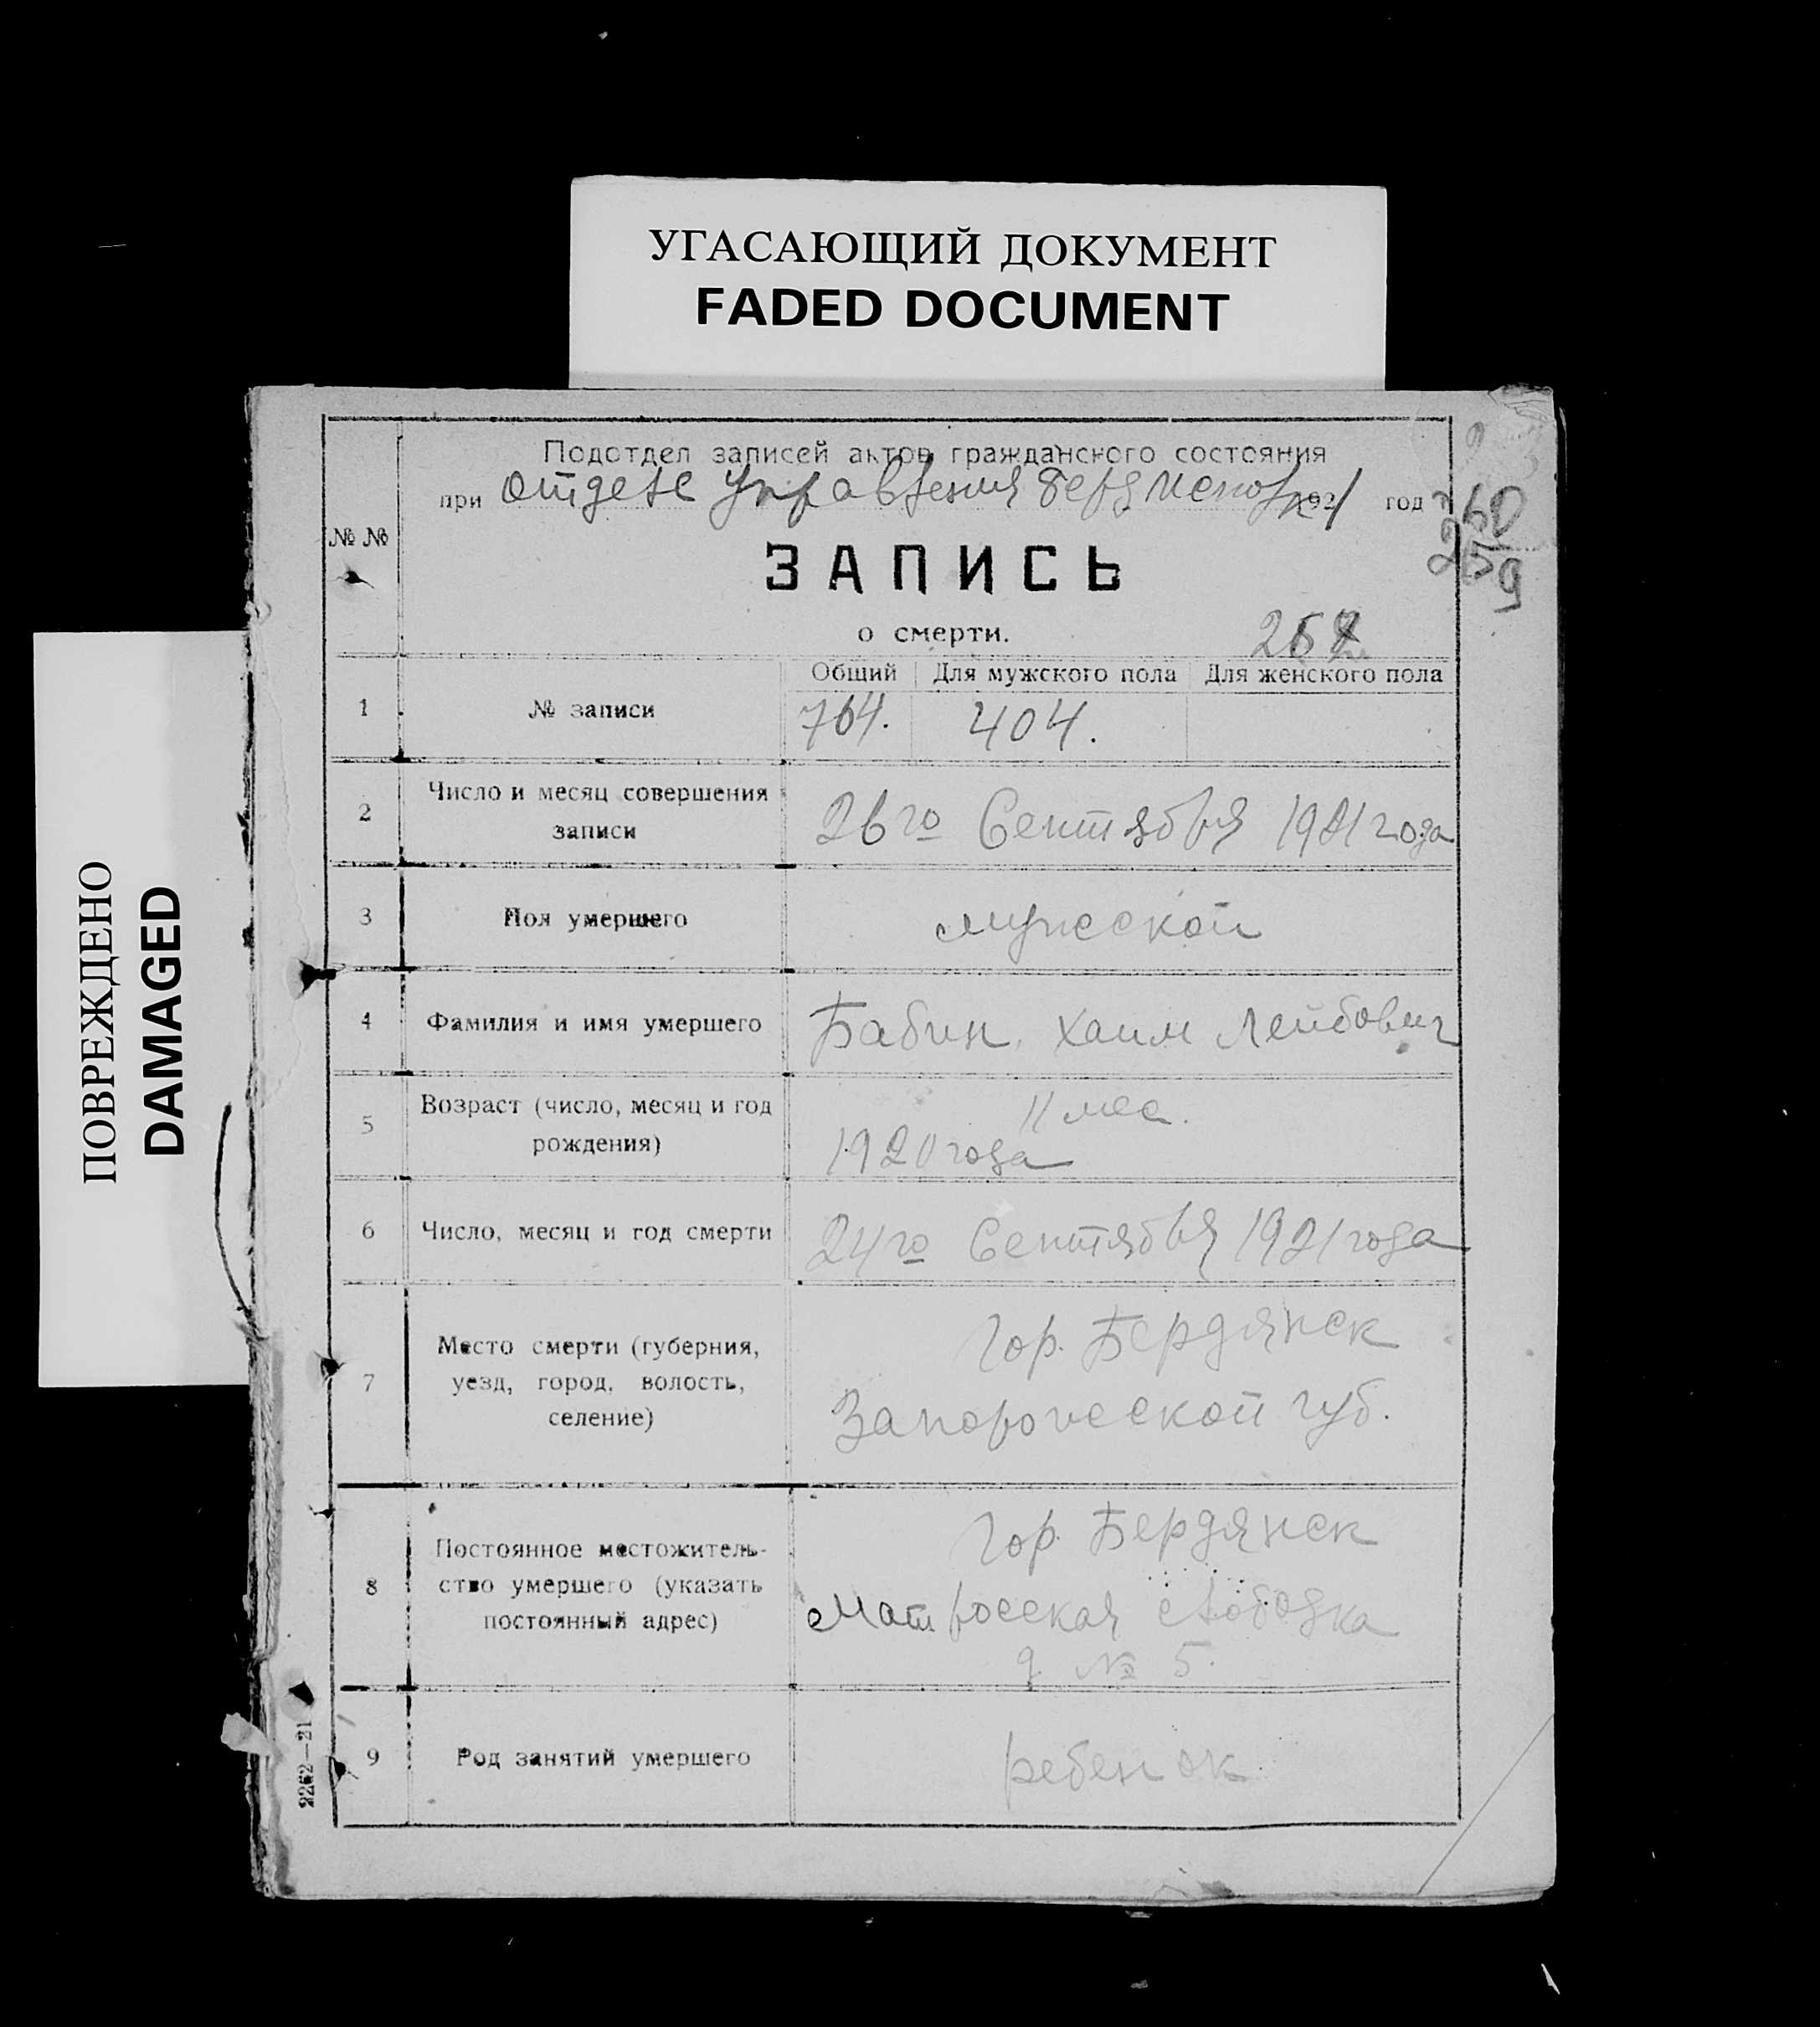 УГАСАЮЩИЙ ДОКУМЕНТ
FADED DOCUMENT
ПОВРЕЖДЕНО
DAMAGED
Подотдел записей актов гражданского состояния
при отделе Управления Бердисполк 1921 год
№ №
ЗАПИСЬ
о смерти.
260
Общий Для мужского пола Для женского пола
1 № записи 764. 404.
2 Число и месяц совершения
записи
26го Сентября 1921 года
3 Пол умершего мужской
4 Фамилия и имя умершего Бабин, Хаим Лейбович
5 Возраст (число, месяц и год
рождения)
11 мес.
1920 года
6 Число, месяц и год смерти 24го Сентября 1921 года
7 Место смерти (губерния,
уезд, город, волость,
селение)
Гор. Бердянск
Запорожской губ.
8 Постоянное местожитель-
ство умершего (указать
постоянный адрес)
Гор. Бердянск
Матросская слободка
д № 5.
9 Род занятий умершего ребенок
2262—21